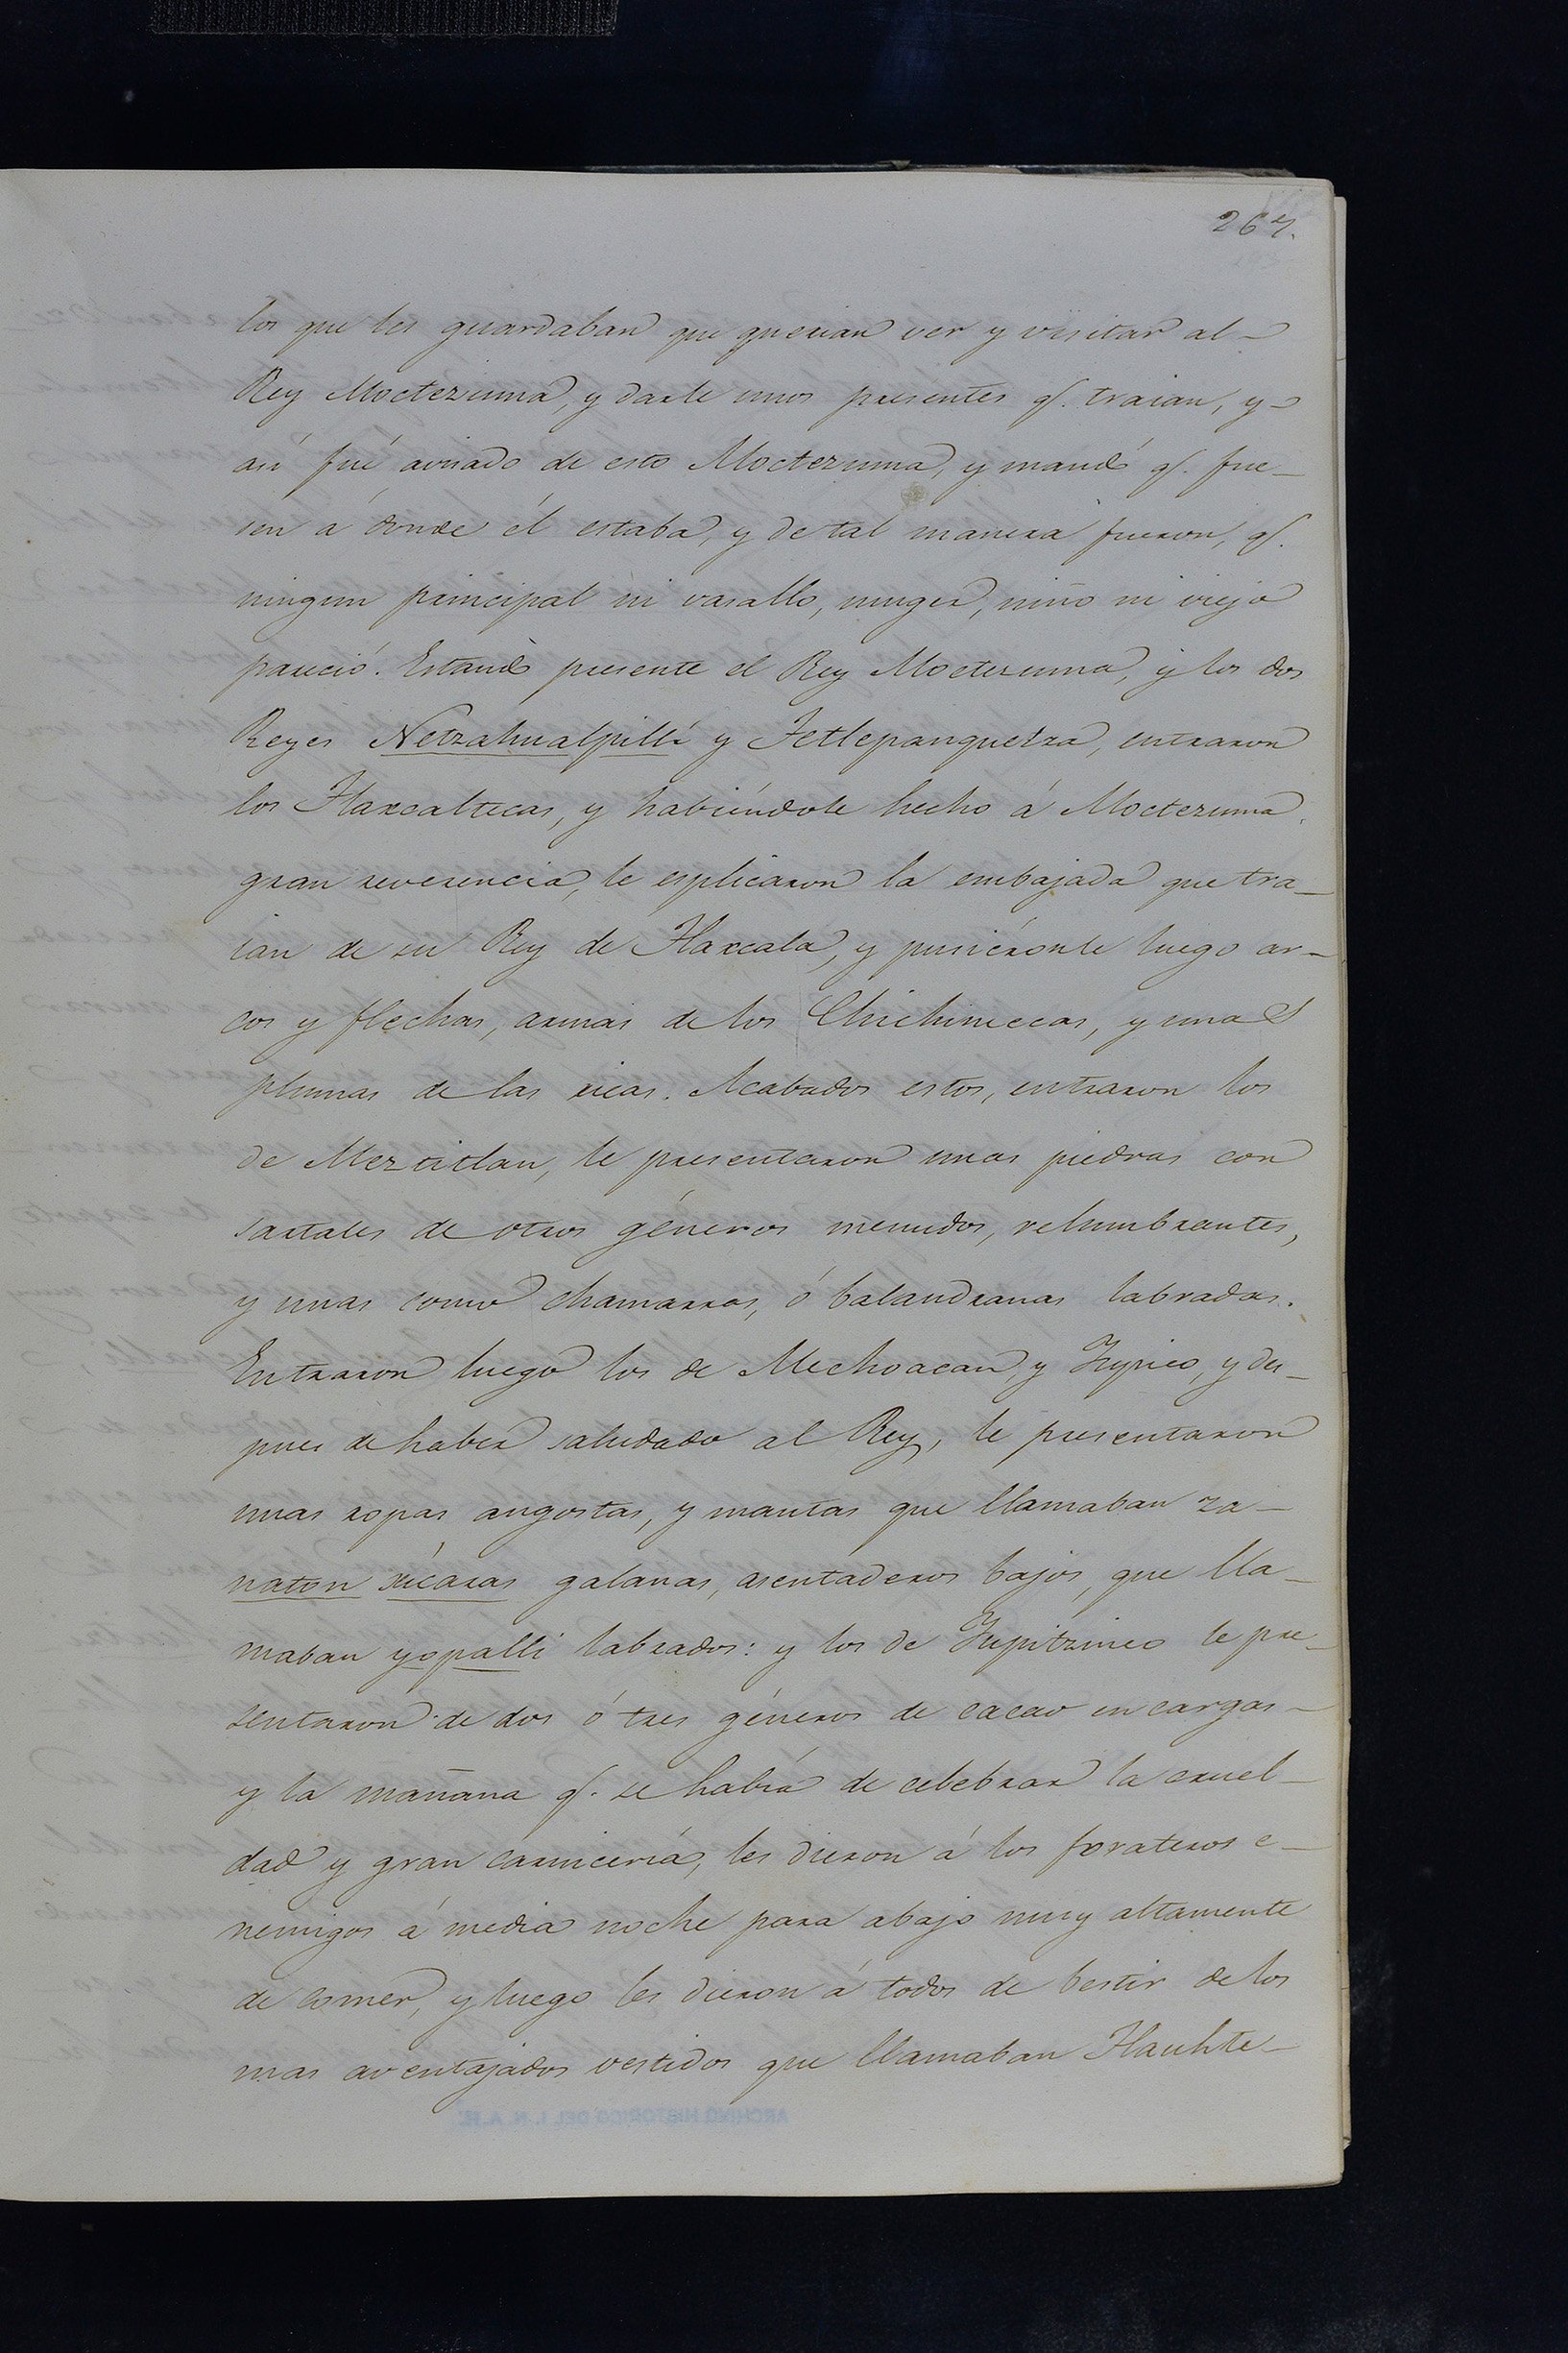 267.
los que les guardaban que querian ver y visitar al
Rey Moctezuma, y darle unos presentes q.ᵉ traian, y
asi fué avisado de esto Moctezuma, y mandó q.ᵉ fue-
sen á donde él estaba, y de tal manera fueron, q.ᵉ
ningun principal ni vasallo, muger, niño ni viejo
pareció. Estando presente el Rey Moctezuma, y los dos
Reyes Netzahualpilli y Tetlepanquetza, entraron
los Tlaxcaltecas, y habiéndole hecho á Moctezuma
gran reverencia, le esplicaron la embajada que tra-
ian de su Rey de Tlaxcala, y pusiéronle luego ar-
cos y flechas, armas de los Chichimecas, y unas
plumas de las ricas. Acabados estos, entraron los
de Meztitlan, le presentaron unas piedras con
sartales de otros géneros menudos, relumbrantes,
y unas como chamarras, ó balandranas labradas.
Entraron luego los de Mechoacan, y Yupico, y des-
pues de haber saludado al Rey, le presentaron
unas ropas angostas, y mantas que llamaban za-
naton xícaras galanas, asentaderos bajos, que lla-
maban yopalli labrados: y los de Yupitzinco le pre-
sentaron de dos ó tres géneros de cacao en cargas
y la mañana q.ᵉ se había de celebrar la cruel-
dad y gran carnicería, les dieron á los forateros e-
nemigos á media noche para abajo muy altamente
de comer, y luego les dieron á todos de bestir de los
mas aventajados vestidos que llamaban Tlauhte-
ARCHIVO HISTORICO DEL I. N. A. H.